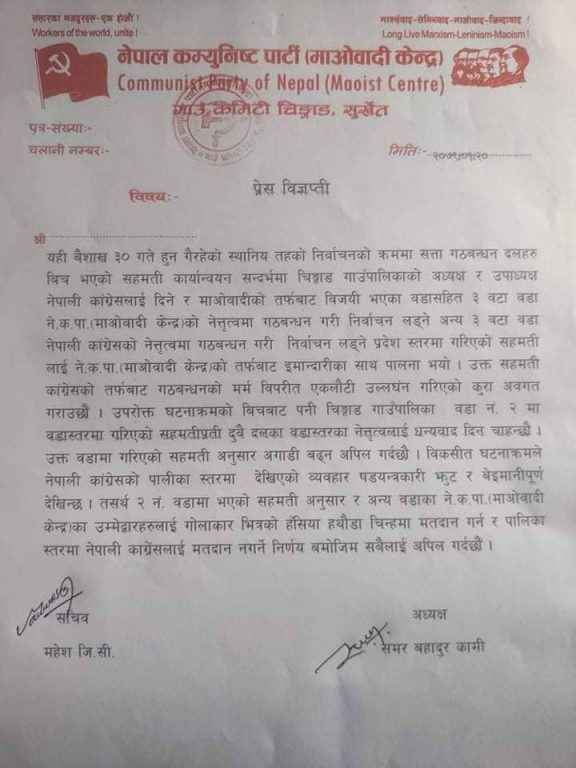 संसारका मजदुरहरु-एक होऔं !
मार्क्सवाद-लेनिनवाद-माओवाद-जिन्दावाद !
Workers of the world, unite !
Long Live Marxism-Leninism-Maoism !
नेपाल कम्युनिष्ट पार्टी (माओवादी केन्द्र)
Communist Party of Nepal (Maoist Centre)
गाउँ कमिटी चिङ्गाड, सुर्खेत
पत्र-संख्याः-
चलानी नम्बरः-
मितिः- २०७९।०१।२०
विषयः- प्रेस विज्ञप्ती
श्री
यही बैशाख ३० गते हुन गैरहेको स्थानिय तहको निर्वाचनको क्रममा सत्ता गठबन्धन दलहरु
बिच भएको सहमती कार्यान्वयन सन्दर्भमा चिङ्गाड गाउँपालिकाको अध्यक्ष र उपाध्यक्ष
नेपाली कांग्रेसलाई दिने र माओवादीको तर्फबाट विजयी भएका वडासहित ३ वटा वडा
ने.क.पा.(माओवादी केन्द्र)को नेत्तृत्वमा गठबन्धन गरी निर्वाचन लड्ने अन्य ३ वटा वडा
नेपाली कंग्रेसको नेत्तृत्वमा गठबन्धन गरी निर्वाचन लड्ने प्रदेश स्तरमा गरिएको सहमती
लाई ने.क.पा.(माओवादी केन्द्र)को तर्फबाट इमान्दारीका साथ पालना भयो । उक्त सहमती
कांग्रेसको तर्फबाट गठबन्धनको मर्म विपरीत एकलौटी उल्लघंन गरिएको कुरा अवगत
गराउछौं । उपरोक्त घटनाक्रमको बिचबाट पनी चिङ्गाड गाउँपालिका वडा नं. २ मा
वडास्तरमा गरिएको सहमतीप्रती दुवै दलका वडास्तरका नेत्तृत्वलाई धन्यवाद दिन चाहन्छौ ।
उक्त वडामा गरिएको सहमती अनुसार अगाडी बढ्न अपिल गर्दछौ । विकसीत घटनाक्रमले
नेपाली कांग्रेसको पालीका स्तरमा देखिएको व्यवहार षडयन्त्रकारी झुट र बेइमानीपूर्ण
देखिन्छ । तसर्थ २ नं. वडामा भएको सहमती अनुसार र अन्य वडाका ने.क.पा.(माओवादी
केन्द्र)का उम्मेद्वारहरुलाई गोलाकार भित्रको हँसिया हथौडा चिन्हमा मतदान गर्न र पालिका
स्तरमा नेपाली कांग्रेसलाई मतदान नगर्ने निर्णय बमोजिम सबैलाई अपिल गर्दछौं ।
सचिव
अध्यक्ष
महेश जि.सी.
समर बहादुर कामी